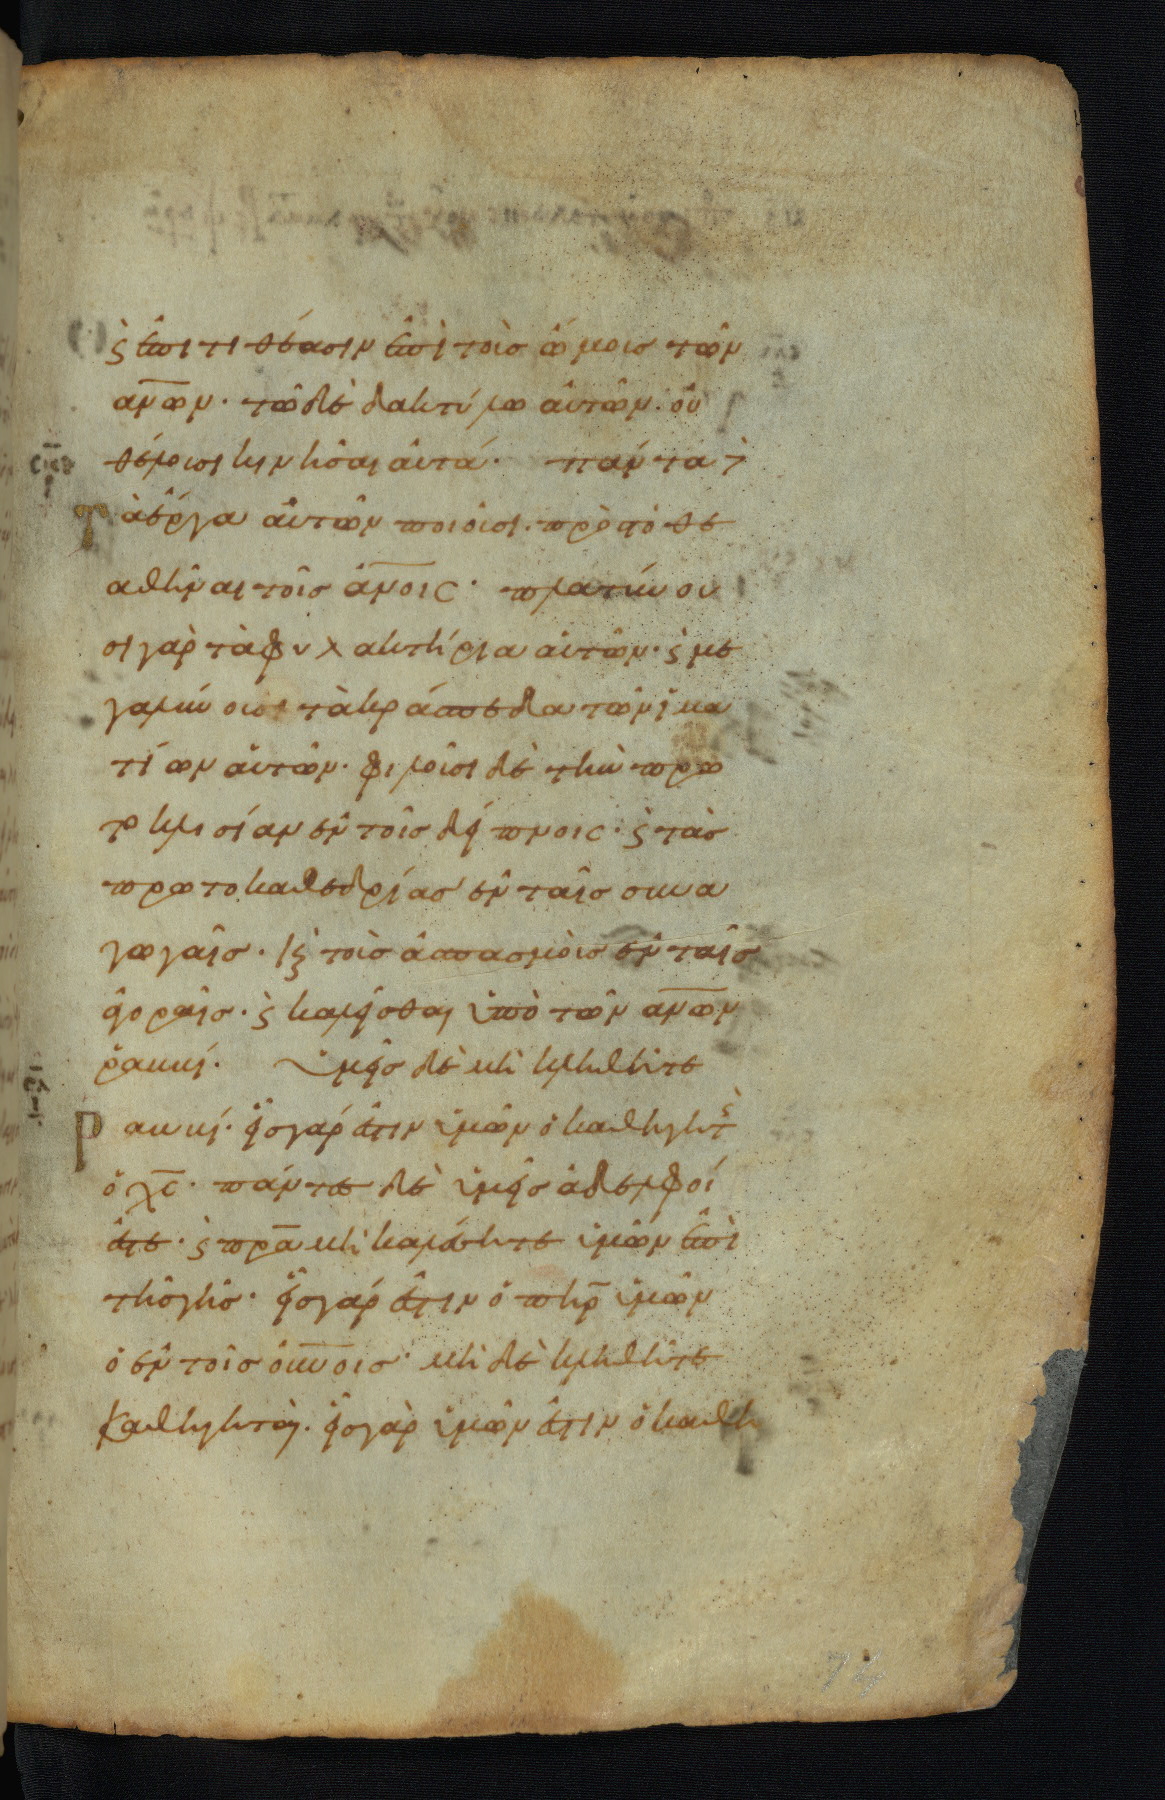 ϛ ἐπιτιθέασιν ἐπὶ τοὺς ὤμους τῶν
ἀν̅ω̅ν· τῶ δὲ δακτύλω αὐτῶν οὐ
θέλουσι κινῆσαι αὐτά· πάντα δὲ
τὰ ἔργα αὐτῶν ποιοῦσι· πρὸς τὸ θε
αθῆναι τοῖς ἀν̅οις· πλατύνου
σι γὰρ τὰ φυλακτήρια αὐτῶν· ϛ με
γαλύνουσι τὰ κράσπεδα τῶν ἱμα
τίων αὐτῶν· φιλοῦσι δὲ τὴν πρω
τοκλισίαν ἐν τοῖς δείπνοις· ϛ τὰς
πρωτοκαθεδρίας ἐν ταῖς συνα
γωγαῖς· ϗ τοὺς ἀσπασμοὺς ἐν ταῖς
ἀγοραῖς· ϛ καλεῖσθαι ὑπὸ τῶν ἀν̅ω̅ν
ῥαββί· ὑμεῖς δὲ μὴ κληθῆτε
ῥαββί· εἷς γάρ ἐστιν ὑμῶν ὁ καθηγητὴς
ὁ χ̅ς̅· πάντες δὲ ὑμεῖς ἀδελφοί
ἐστε· ϛ πρ̅α μὴ καλέσητε ὑμῶν ἐπὶ
τῆς γῆς· εἷς γάρ ἐστιν ὁ πηρ̅ ὑμῶν
ὁ ἐν τοῖς οὐν̅οις· μὴ δὲ κληθῆτε
καθηγηταί· εἷς γὰρ ὑμῶν ἐστιν ὁ καθη